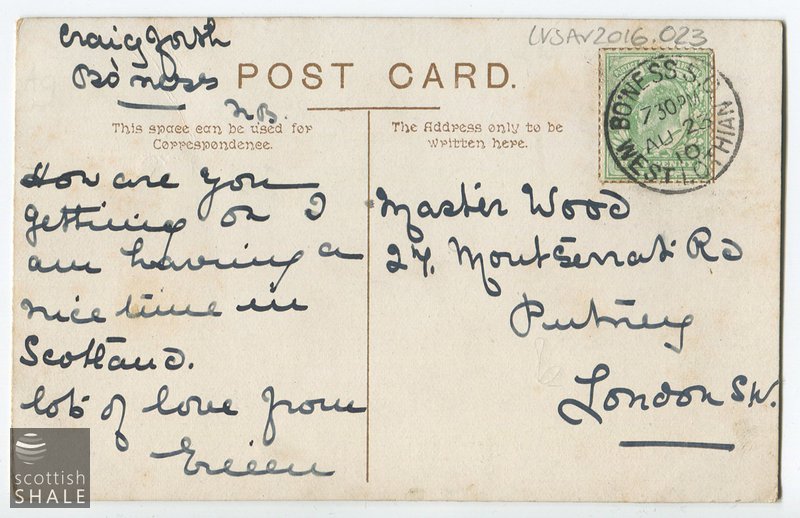 LVSAV2016.023
Craigforth
Bo'ness
N.B.
POST CARD.
This space can be used for
Correspondence.
The Address only to be
written here.
BO'NESS S.O
7 30 PM
AU 25
10
WEST LOTHIAN
PENNY
How are you
getting on I
am having a
nice time in
Scotland.
lots of love from
Eileen
Master Wood
27, Montserrat Rd
Putney
London S.W.
scottish
SHALE